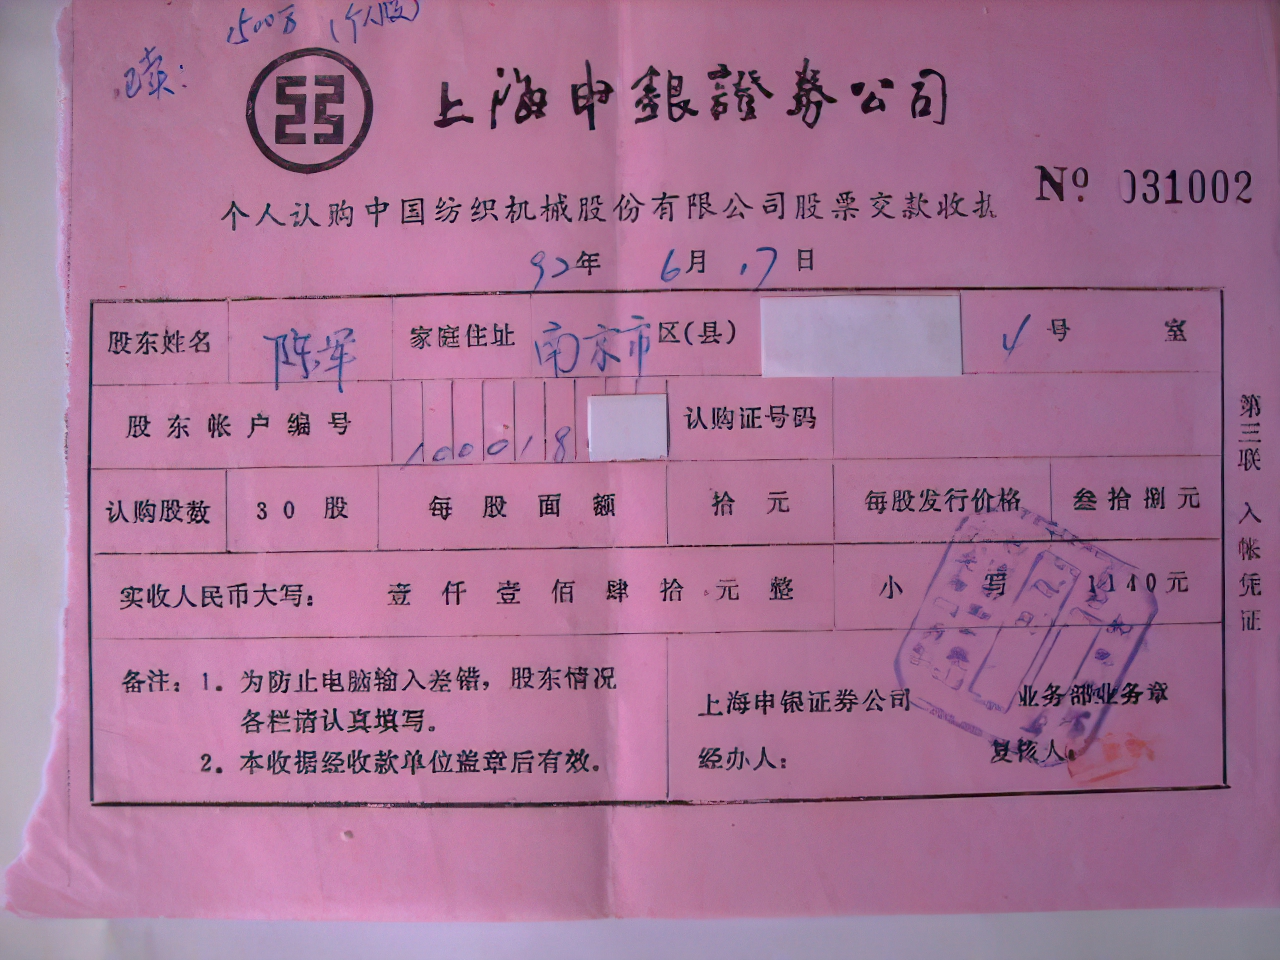 1500万(个人股)
已卖:
上海申銀證券公司
Nº 031002
个人认购中国纺织机械股份有限公司股票交款收执
92年 6月 17日
股东姓名 陈军 家庭住址 南京市 区(县) 4号 室
股东帐户编号 100018 认购证号码
认购股数 30股 每股面额 拾元 每股发行价格 叁拾捌元
实收人民币大写: 壹仟壹佰肆拾元整 小写 1140元
备注:1. 为防止电脑输入差错,股东情况
各栏请认真填写。
2. 本收据经收款单位盖章后有效。
上海申银证券公司 业务部业务章
经办人: 复核人:
第三联 入帐凭证